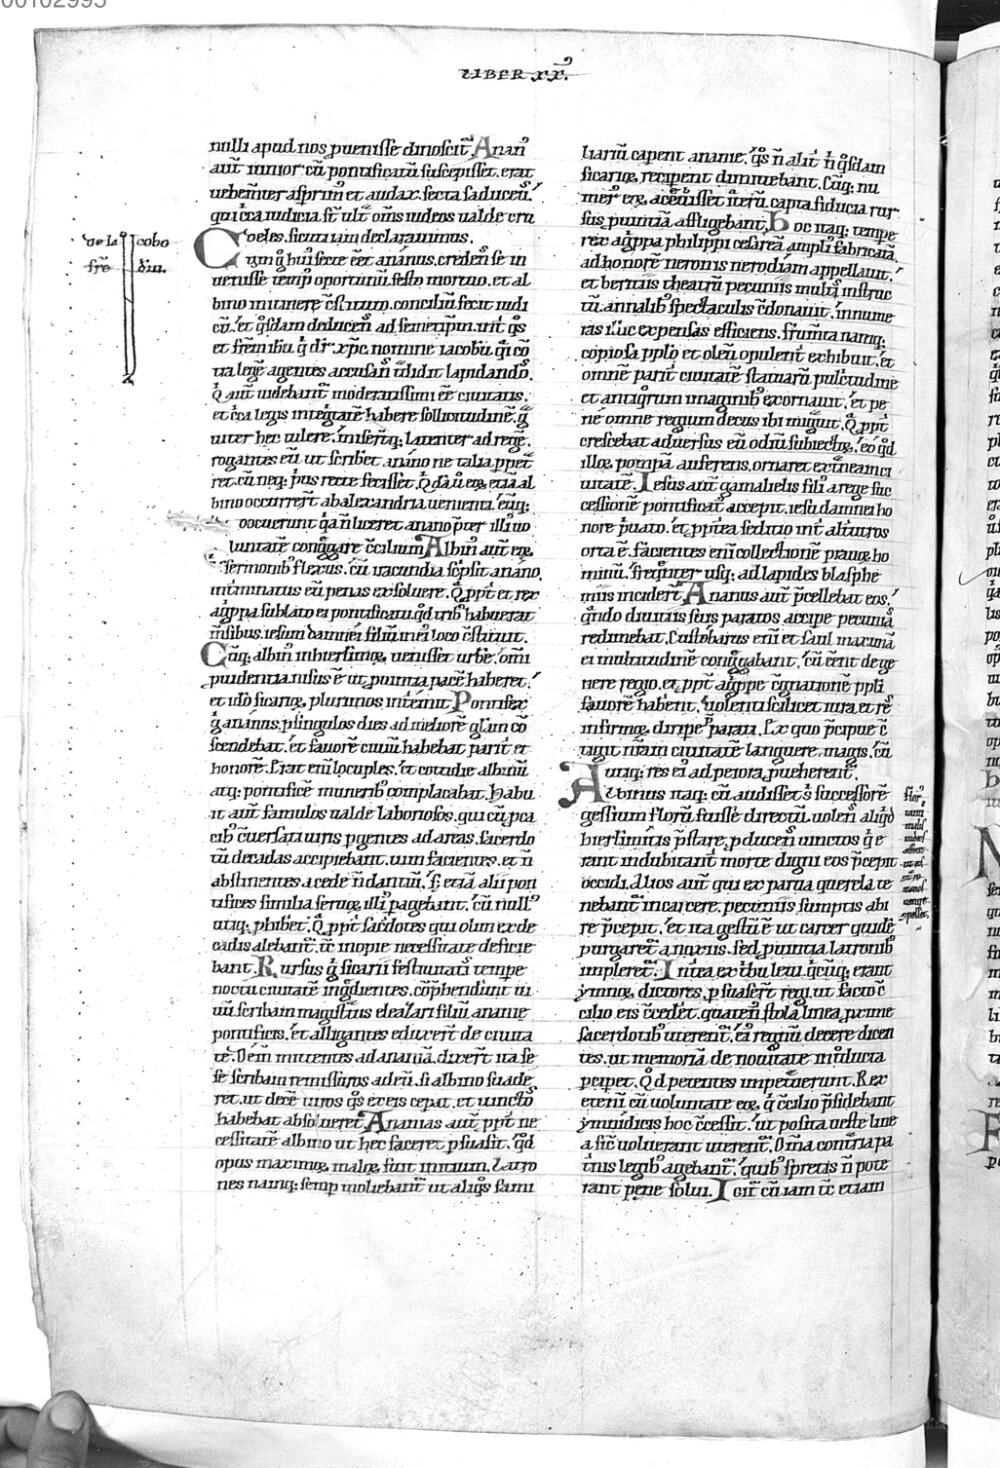 00102995
LIBER XX.
nulli apud nos ꝑuenisse dinoscit᷑ Anan᷒
aut̄ iunior cū pontificatū suscepisset. erat
uehem̄ter asprim᷒ et audax. secta saduceū.
qui c̄ca iudicia st̄ ult̄ om̄s iudeos ualde cru
deles. sicut iam declarauimus.
de Iacobo
fr̄e dīn̄i.
Cum g̊ hui᷒ secte ēēt ananus. creden̄s se in
uenisse temp᷒ oportunū festo mortuo. et al
bino in itinere c̄stituto. conciliū fecit iudi
cū. et q̊sdam deducen̄s ad semetip̄m. int̄ q̊s
et fr̄em ihu q̇ dr̄ xp̄c. nomine iacobū. q̇i cō
tra legē agentes accusan̄s t̄didit lapidandos.
Q̇ aut̄ uidebant᷑ moderatissimi ēē ciuitatis.
et c̄ca legis integ̊tatē habere sollicitudinē. g̊
uiter hec tulere. miser̄tq; latenter ad regē.
rogantes eū ut scriberet anano ne talia ꝑpet̄
ret. cū neq; p̊us recte fecisset. Q̇dā ū eoꝝ etiā al
bino occurrer̄t ab alexandria uenienti. eūq;
docuerunt q̇a n̄ liceret anano p̄ter illi᷒ uo
luntatē cong̊gare c̄cilium. Albin᷒ aut̄ eoꝝ
sermonib᷒ flexus. cū iracundia sc̊psit anano.
int̄minatus eū penas exsoluere. Q̊ ppt̄ et rex
ag̊ppa sublato ei pontificatu. q̊d trib᷒ habuerat
m̄sibus. iesum damnei filiū in ei᷒ loco c̄stituit.
Cūq; albin᷒ in hierlimoꝝ uenisset urbē. om̄i
prudentia nisus ē ut ꝓuintia pacē haberet.
et ido̊ sicarioꝝ plurimos int̄emit. Pontifex
g̊ ananus. ꝑ singulos dies ad meliorē gl̄am cō
scendebat. et fauorē ciuiū habebat parit̄ et
honorē. Erat eni locuples. et cotidie albinū
atq; pontificē munerib᷒ complacabat. Habu
it aut̄ famulos ualde laboriosos. qui cū ꝑca
cib᷒ c̄uersati uiris ꝑgentes ad areas. sacerdo
tū decadas accipiebant. uim facientes. et n̄
abstinentes a cede n̄ dantiū. S; etiā alii pon
tifices similia seruoꝝ illi᷒ pagebant. cū null᷒
utiq; ꝓhibēt. Q̊ ppt̄ sac̄dotes qui olim ex de
cadis alebant᷑. tc̄ inopie necessitate deficie
bant. Rursus g̊ sicarii festiuitati᷒ tempe
noctu ciuitatē ing̊dientes. c̄p̄hendunt ui
uū scribam magistrat᷒ eleazari filiū ananie
pontificis. et alligantes eduxer̄t de ciuita
te. Dein mittentes ad ananiā. dixer̄t ita se
se scribam remissuros ad eū. si albino suade
ret. ut decē uiros q̊s ex eis cepat. et uinctos
habebat absolueret. Ananias aut̄ ppt̄ ne
cessitatē albino ut hec faceret ꝑsuasit. Q̊d
opus maximoꝝ maloꝝ fuit initium. Latro
nes namq; semp moliebant᷑ ut aliq̊s fami
liariū caperent ananie. q̊s n̄ alit̄ n̄ q̊sdam
sicarioꝝ reciperent dimittebant. Cūq; nu
mer᷒ eoꝝ accreuisset iterū capta fiducia rur
sus ꝓuintiā affligebant. Hoc itaq; tempe
rex ag̊ppa philippi cesareā ampli᷒ fabricatā.
ad honorē neronis nerodiam appellauit.
et beritiis theatrū pecuniis multis instruc
tū. annalib᷒ spectaculis c̄donauit. innume
ras illuc expensas efficiens. frum̄ta namq;
copiosa pplo et oleū opulent̄ exhibuit. et
omnē parit̄ ciuitatē statuarū pulcritudine
et antiq̊rum imaginib᷒ exornauit. et pe
ne omne regium decus ibi mig̊uit. Q̊ ppt̄
crescebat aduersus eū odiū subiectoꝝ. eo q̊d
illoꝝ pompā auferens. ornaret extraneam ci
uitatē. Iesus aut̄ gamalielis fili᷒ a rege suc
cessionē pontificat᷒ accepit. iesu damnei ho
nore p̊uato. et ppt̄ea seditio int̄ alt̄utros
orta ē. facientes eni collectionē prauoꝝ ho
minū. freq̄nter usq; ad lapides blasphe
miis incidert̄. Ananus aut̄ p̄cellebat eos.
q̊ndo diuitiis suis paratos accipe pecuniā
redimebat. Custobarus eni et saul maximā
ei multitudinē cong̊gabant. cū cēnt de ge
nere regio. et ppt̄ ag̊ppe c̄gnationē ppli
fauorē habēnt. uiolenti scilicet iura et rēs
infirmoꝝ diripe parati. Ex quo p̄cipue c̄
tigit nr̄am ciuitatē languere magis. cū
utiq; res ei᷒ ad peiora ꝓueherent᷑.
Albinus itaq; cū audisset s̄ successorē
gessium florū fuisse directū. uolens aliq̊d
hierlimitis p̄stare. ꝓducens uinctos q̇ e
rant indubitant̄ morte digni eos p̄cepit
occidi. Alios aut̄ qui ex parua querela te
nebant᷑ in carcere. pecuniis sumptis abi
re p̄cepit. et ita gestū ē ut carcer quidē
purgaret᷑ a noxiis. sed ꝓuintia latronib᷒
impleret᷑. Int̄ea ex tribu leui q̇cūq; erant
ymnoꝝ dictores. ꝑsuaser̄t regi. ut facto c̄
cilio. eis c̄cedet̄. quaten᷒ stola linea ꝓxime
sacerdotib᷒ uterent᷑. ei᷒ regnū decere dicen
tes. ut memoriā de nouitate induct̄a
pciperet. Q̊d petentes impetrauerunt. Rex
etenī cū uoluntate eoꝝ q̇ c̄cilio p̄sidebant
ymnidicis hoc c̄cessit. ut posita ueste line
a sic̄ uoluerant uterent᷑. Om̄a cont̊ria pa
t̄nis legib᷒ agebant᷑. quib᷒ spretis n̄ pote
rant pene solui. Igit̄ cū iam tc̄ etiam